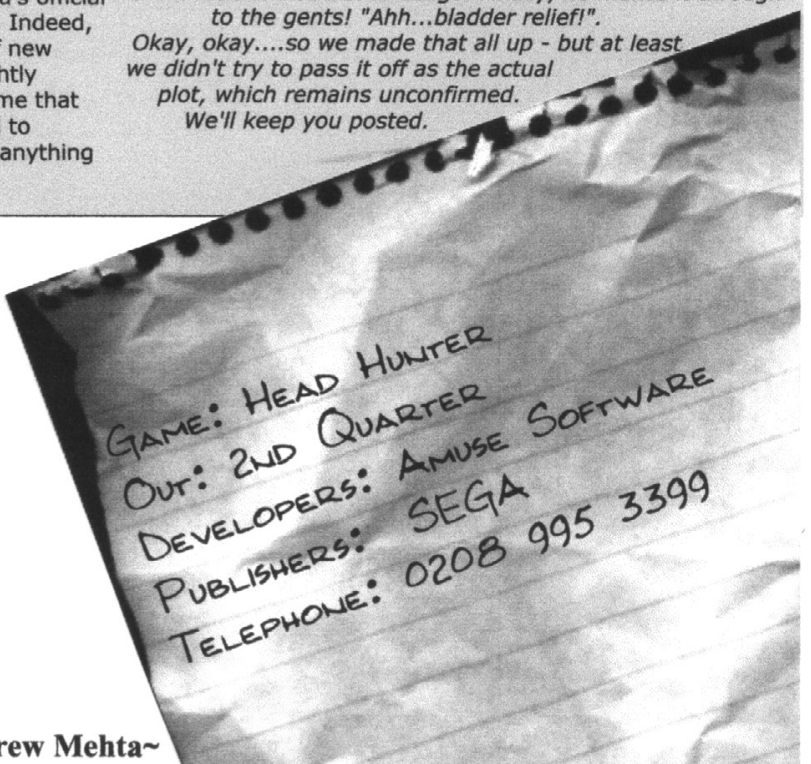 Indeed,
new
me that
to
anything
to the gents! "Ahh...bladder relief!".
Okay, okay....so we made that all up - but at least
we didn't try to pass it off as the actual
plot, which remains unconfirmed.
We'll keep you posted.
GAME: HEAD HUNTER
OUT: 2ND QUARTER
DEVELOPERS: AMUSE SOFTWARE
PUBLISHERS: SEGA
TELEPHONE: 0208 995 3399
rew Mehta~